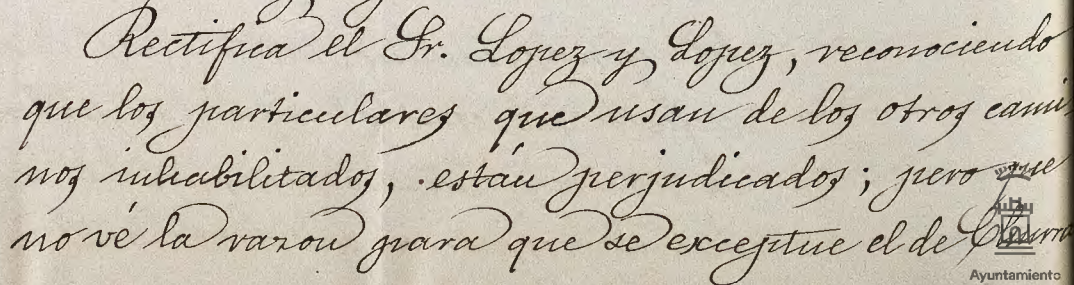 Rectifica el Sr. Lopez y Lopez, reconociendo
que los particulares que usan de los otros cami-
nos inhabilitados, están perjudicados; pero que
no vé la razon para que se exceptue el de Churra
Ayuntamiento